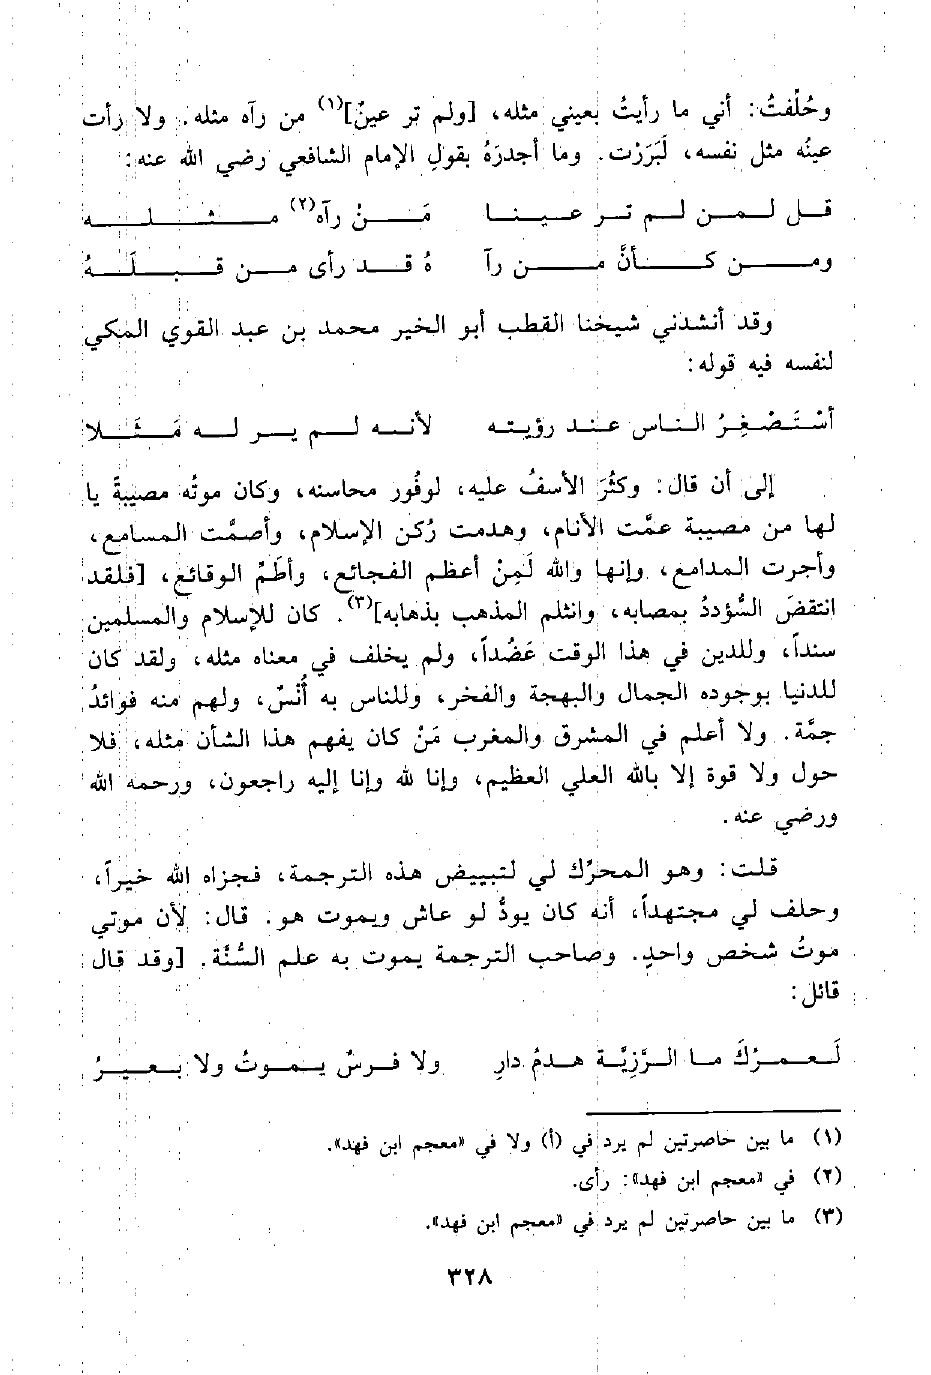 وحُلِّفتُ: أني ما رأيتُ بعيني مثله، [ولم تر عينٌ](١) من رآه مثله. ولا رأت
عينُه مثل نفسه، لَبَرَرْت. وما أجدرَهُ بقولِ الإمام الشافعي رضي الله عنه:
قـل لـمـن لـم تـر عـيـنـا مَـنْ رآه(٢) مـثـلـه
ومـن كـأنَّ مـن رآ هُ قـد رأى مـن قـبـلَـهُ
وقد أنشدني شيخنا القطب أبو الخير محمد بن عبد القوي المكي
لنفسه فيه قوله:
أسْتَصْغِرُ الناس عند رؤيته لأنه لـم يـر له مَثَلا
إلى أن قال: وكثُرَ الأسفُ عليه، لوفُور محاسنه، وكان موتُه مصيبةً يا
لها من مصيبة عمَّت الأنام، وهدمت رُكن الإسلام، وأصمَّت المسامع،
وأجرت المدامع، وإنها والله لَمِنْ أعظم الفجائع، وأطَمِّ الوقائع، [فلقد
انتقضَ السُّؤددُ بمصابه، وانثلم المذهب بذهابه](٣). كان للإسلام والمسلمين
سنداً، وللدين في هذا الوقت عَضُداً، ولم يخلف في معناه مثله، ولقد كان
للدنيا بوجوده الجمال والبهجة والفخر، وللناس به أُنْسٌ، ولهم منه فوائدُ
جمَّة. ولا أعلم في المشرق والمغرب مَنْ كان يفهم هذا الشأن مثله، فلا
حول ولا قوة إلا بالله العلي العظيم، وإنا لله وإنا إليه راجعون، ورحمه الله
ورضي عنه.
قلت: وهو المحرِّك لي لتبييض هذه الترجمة، فجزاه الله خيراً،
وحلف لي مجتهداً، أنه كان يودُّ لو عاش ويموت هو. قال: لأن موتي
موتُ شخص واحدٍ. وصاحب الترجمة يموت به علم السُّنَّة. [وقد قال
قائل:
لَعمرُكَ ما الرَّزِيَّة هدمُ دارِ ولا فرسٌ يموتُ ولا بعيرُ
(١) ما بين حاصرتين لم يرد في (أ) ولا في «معجم ابن فهد».
(٢) في «معجم ابن فهد»: رأى.
(٣) ما بين حاصرتين لم يرد في «معجم ابن فهد».
٣٢٨